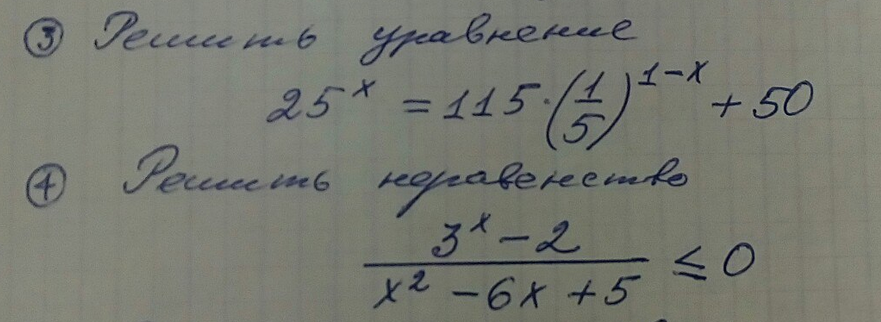 ③ Решить уравнение
25^x = 115·(1/5)^(1-x) + 50
④ Решить неравенство
(3^x - 2)/(x^2 - 6x + 5) ≤ 0